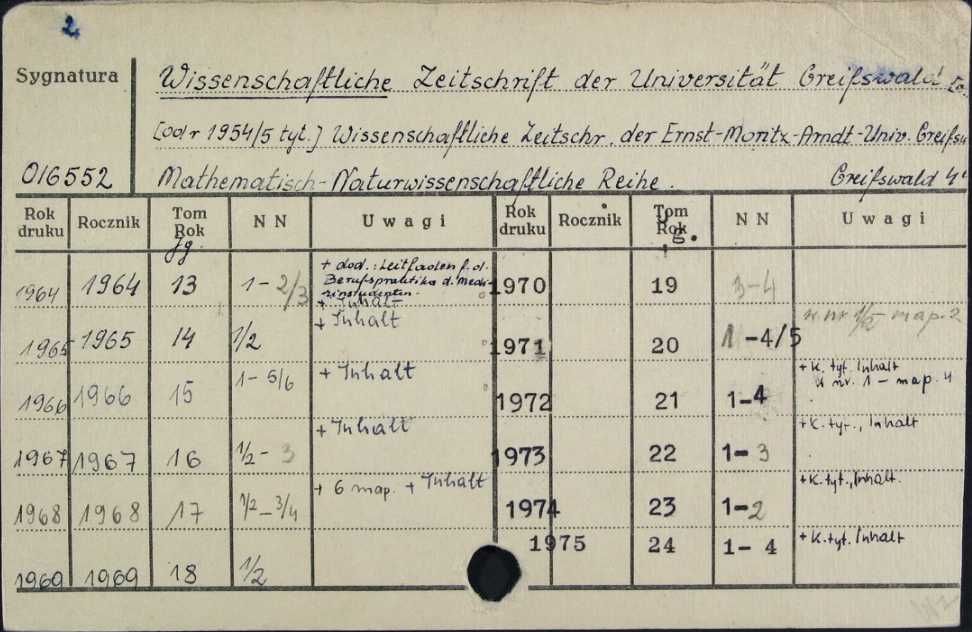 2
Sygnatura
Wissenschaftliche Zeitschrift der Universität Greifswald.
[od r 1954/5 tyt.] Wissenschaftliche Zeitschr. der Ernst-Moritz-Arndt-Univ. Greifsw
016552 Mathematisch-Naturwissenschaftliche Reihe. Greifswald 4°
Rok druku Rocznik Tom Rok Jg. NN Uwagi Rok druku Rocznik Tom Rok Jg. NN Uwagi
1964 1964 13 1-2/3 + dod.: Leitfaden f. d. Berufspraktika d. Medizinstudenten. + Inhalt 1970 19 3-4
1965 1965 14 1/2 + Inhalt 1971 20 1-4/5 w nr 1/2 map. 2
1966 1966 15 1-5/6 + Inhalt 1972 21 1-4 + K. tyt. Inhalt w nr. 1 - map. 4
1967 1967 16 1/2-3 + Inhalt 1973 22 1-3 + K. tyt., Inhalt
1968 1968 17 1/2-3/4 + 6 map. + Inhalt 1974 23 1-2 + K. tyt., Inhalt.
1975 24 1-4 + K. tyt. Inhalt
1969 1969 18 1/2